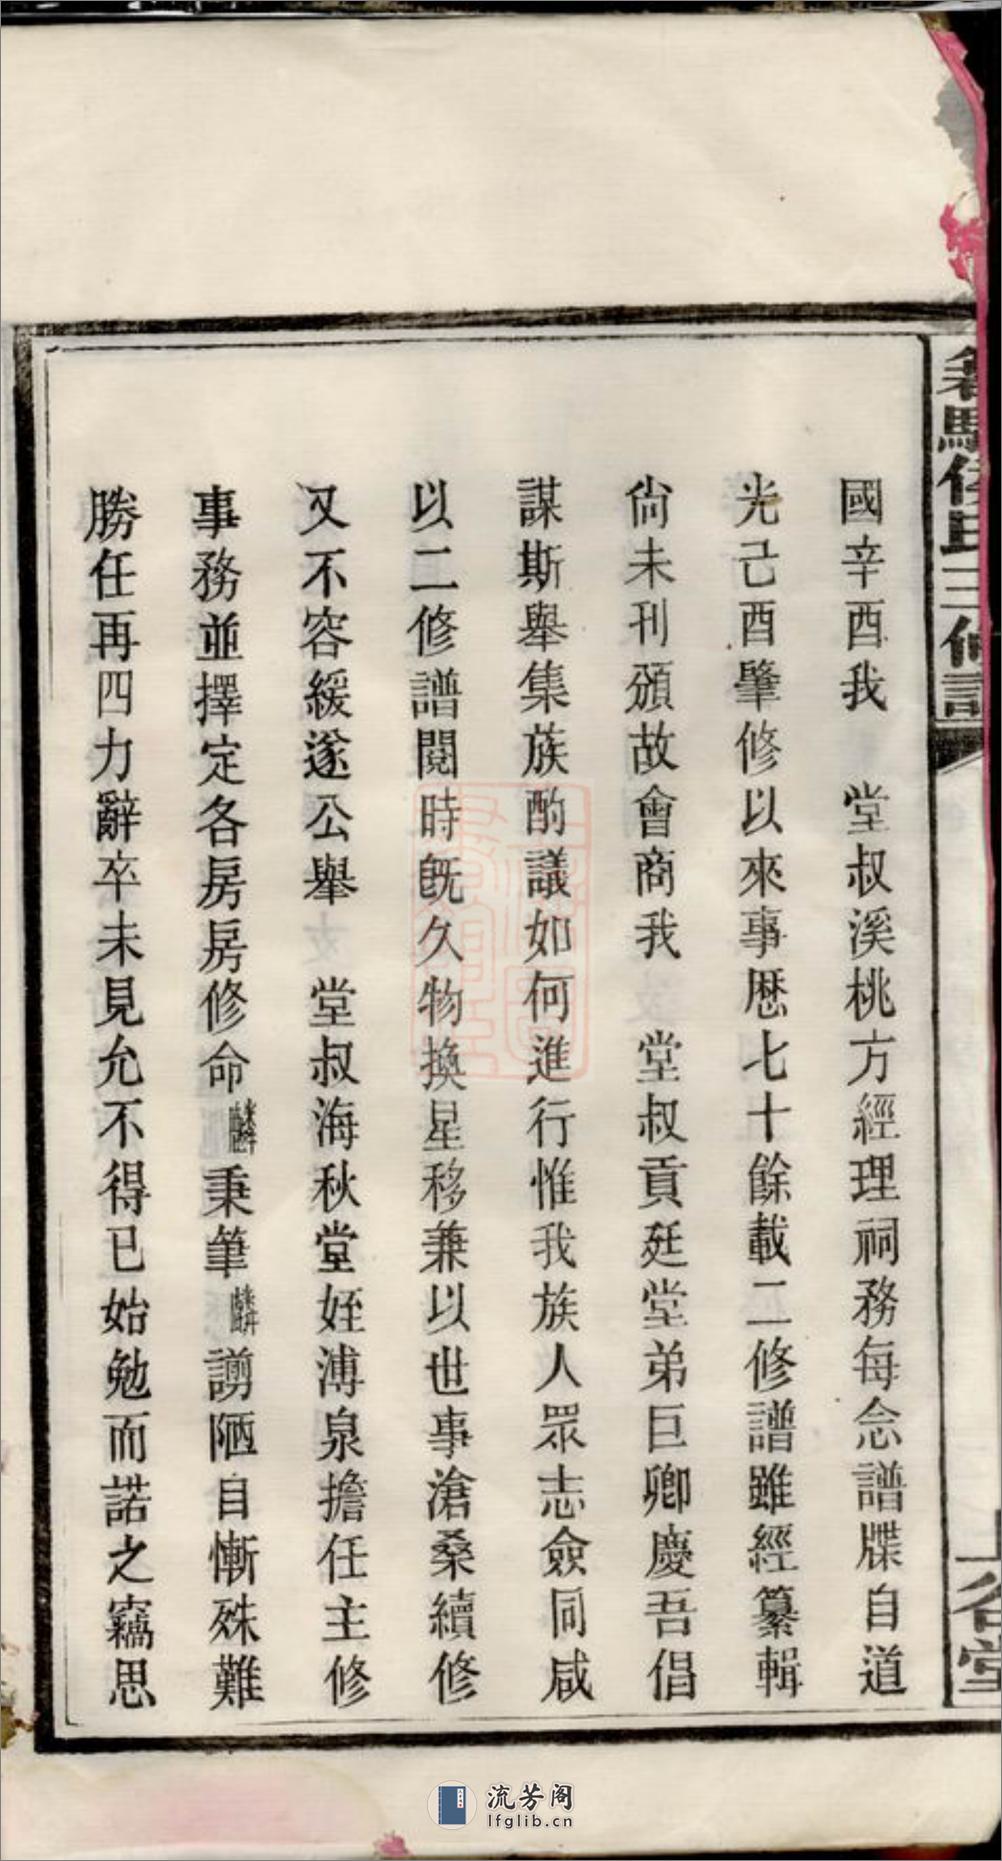 侯氏三修譜
上谷堂
國辛酉我　堂叔溪桃方經理祠務每念譜牒自道
光己酉肇修以來事歷七十餘載二修譜雖經纂輯
尚未刊頒故會商我　堂叔貢廷堂弟巨卿慶吾倡
謀斯舉集族酌議如何進行惟我族人眾志僉同咸
以二修譜閱時旣久物換星移兼以世事滄桑續修
又不容緩遂公舉　堂叔海秋堂姪溥泉擔任主修
事務並擇定各房房修命麟秉筆麟謭陋自慚殊難
勝任再四力辭卒未見允不得已始勉而諾之竊思
流芳阁
lfglib.cn